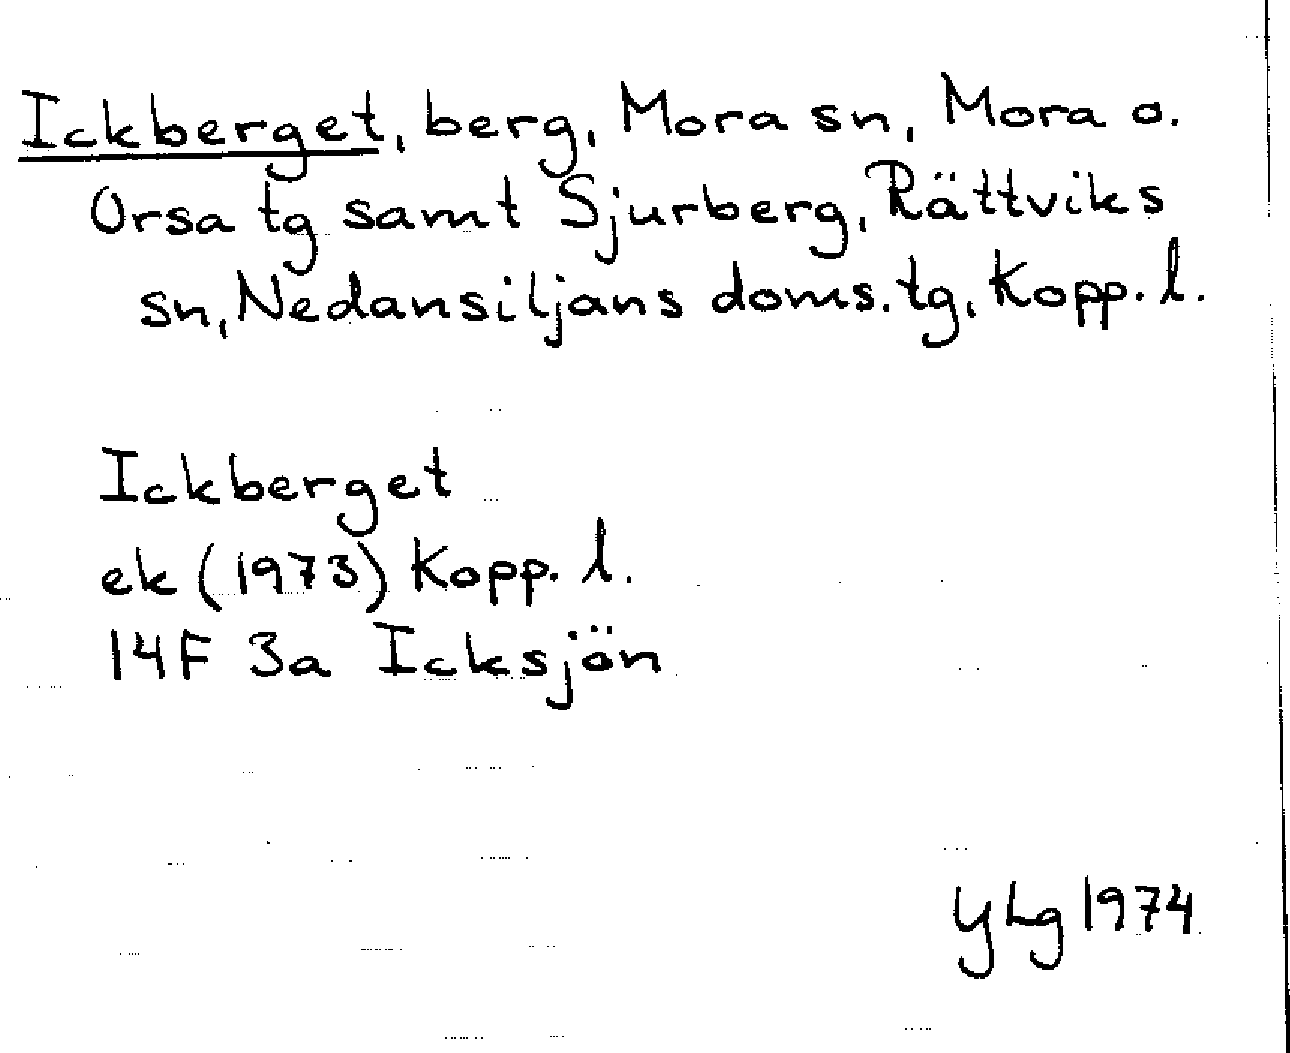 Ickberget, berg, Mora sn, Mora o.
Orsa tg samt Sjurberg, Rättviks
sn, Nedansiljans doms. tg, Kopp. l.
Ickberget
ek (1973) Kopp. l.
14F 3a Icksjön
YLg 1974